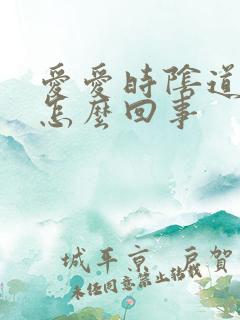 愛愛時陰道
怎麼回事
城平京 戶賀
未經同意禁止轉載